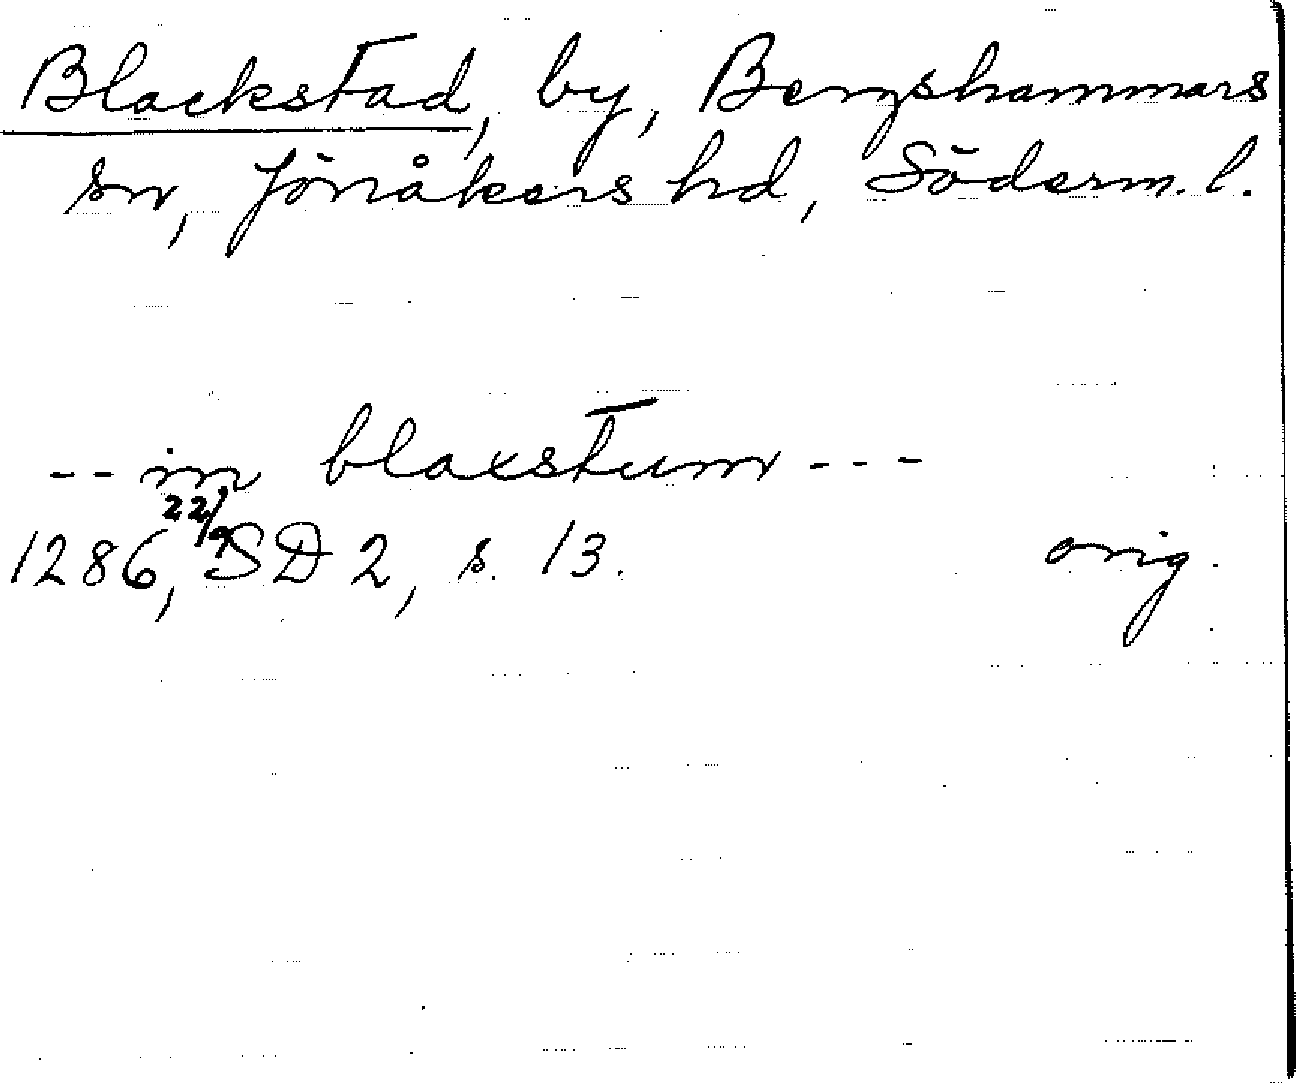 Blackstad, by, Bergshammars
sn, Jönåkers hd, Söderm. l.
-- in blaxstum ---
1286, 22/9 SD 2, s. 13. orig.